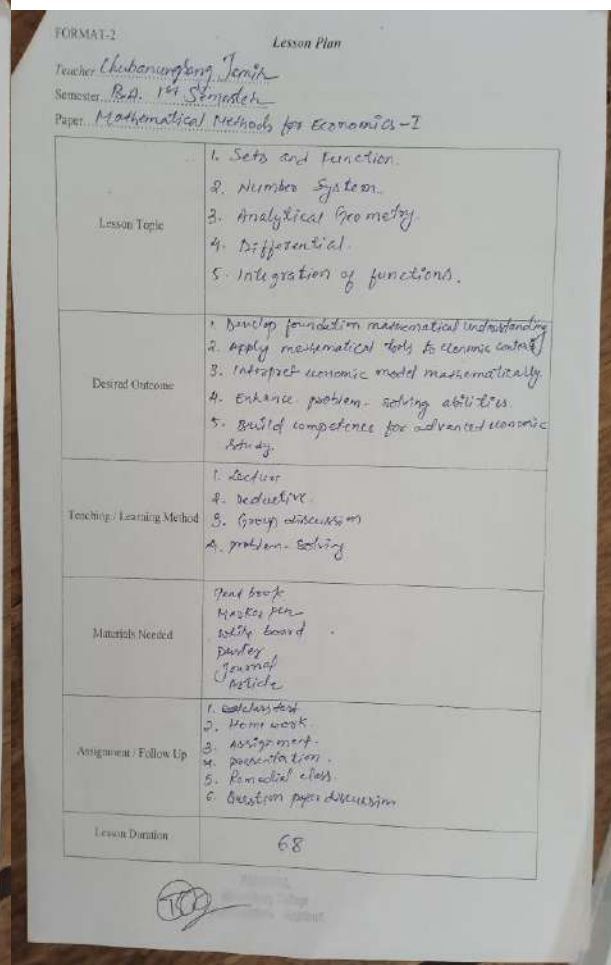 FORMAT-2
Lesson Plan
Teacher Chubanungsang Jamir
Semester B.A. 1st Semester
Paper Mathematical Methods for Economics-I
Lesson Topic
1. Sets and Function.
2. Number System.
3. Analytical Geometry.
4. Differential.
5. Integration of functions.
Desired Outcome
1. Develop foundation mathematical understanding
2. Apply mathematical tools to economic context
3. Interpret economic model mathematically.
4. Enhance problem-solving abilities.
5. Build competence for advanced economic
study.
Teaching / Learning Method
1. Lecture
2. Deductive.
3. Group discussion
4. problem-solving
Materials Needed
Text book
Marker pen
White board
Duster
Journal
Article
Assignment / Follow Up
1. class test
2. Home work.
3. Assignment.
4. presentation.
5. Remedial class.
6. Question paper discussion
Lesson Duration
68